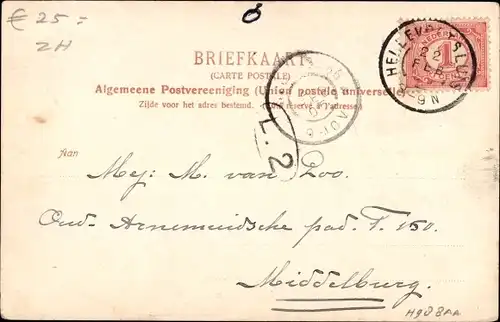 € 25=
ZH
BRIEFKAART
(CARTE POSTALE)
Algemeene Postvereeniging (Union postale universelle)
Zijde voor het adres bestemd. (Côté réservé à l'adresse)
HELLEVOETSLUIS
NEDERLAND
1
L. 2
Aan
Mej: M. van Loo.
Oud-Arnemuidsche pad. F. 150.
Middelburg.
H988AA